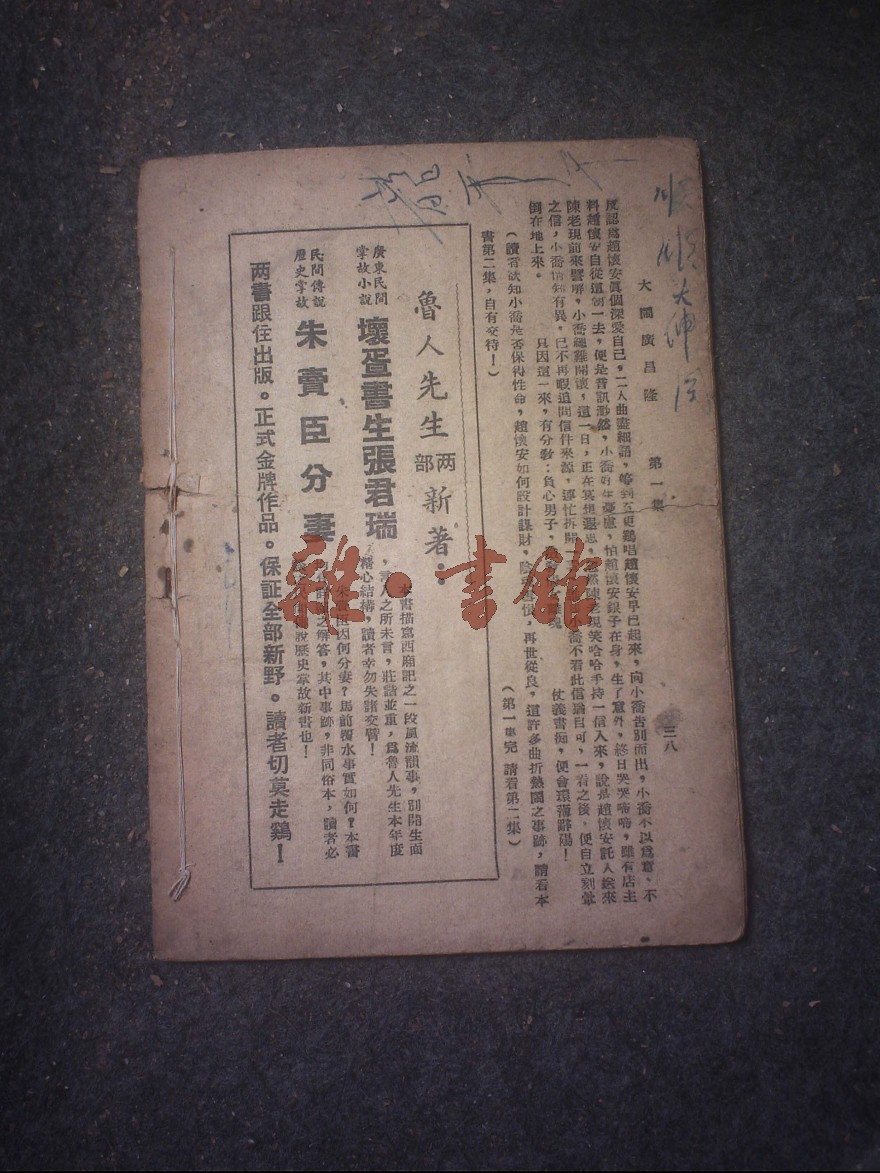 大鬧廣昌隆 第一集 三八
度認爲趙懷安眞個深愛自己，二人曲盡細語，等到五更鷄唱趙懷安早已起來，向小喬告別而出，小喬不以爲意、不
料趙懷安自從這朝一去，便是音訊渺然，小喬好生憂慮，怕趙懷安銀子在身，生了意外，終日哭哭啼啼，雖有店主
陳老現前來警解，小喬總難開懷，這一日，正在冥想 陳老現笑哈哈手持一信入來，說是趙懷安託人送來
之信，小喬情知有異，已不再暇追問信件來源，連忙拆開一 小喬不看此信猶自可，一看之後，便自立刻暈
倒在地上來。 只因這一來，有分敎：負心男子， 仗義書痴，便會環遊歸陽！
再世從良，這許多曲折熱鬧之事跡，請看本
書第二集，自有交待！
（讀者欲知小喬是否保得性命，趙懷安如何設計謀財，
（第一集完 請看第二集）
魯人先生两部新著：
廣東民間
掌故小說
壞蛋書生張君瑞
本書描寫西廂記之一段風流韻事，別開生面
，言人之所未言，莊諧並重，爲魯人先生本年度
精心結構，讀者幸勿失諸交臂！
民間傳說
歷史掌故
朱賣臣分妻
朱賣臣因何分妻？馬前覆水事實如何？本書
之解答，其中事跡，非同俗本，讀者必
說歷史掌故新書也！
两書跟住出版。正式金牌作品。保証全部新野。讀者切莫走鷄！
雜·書館